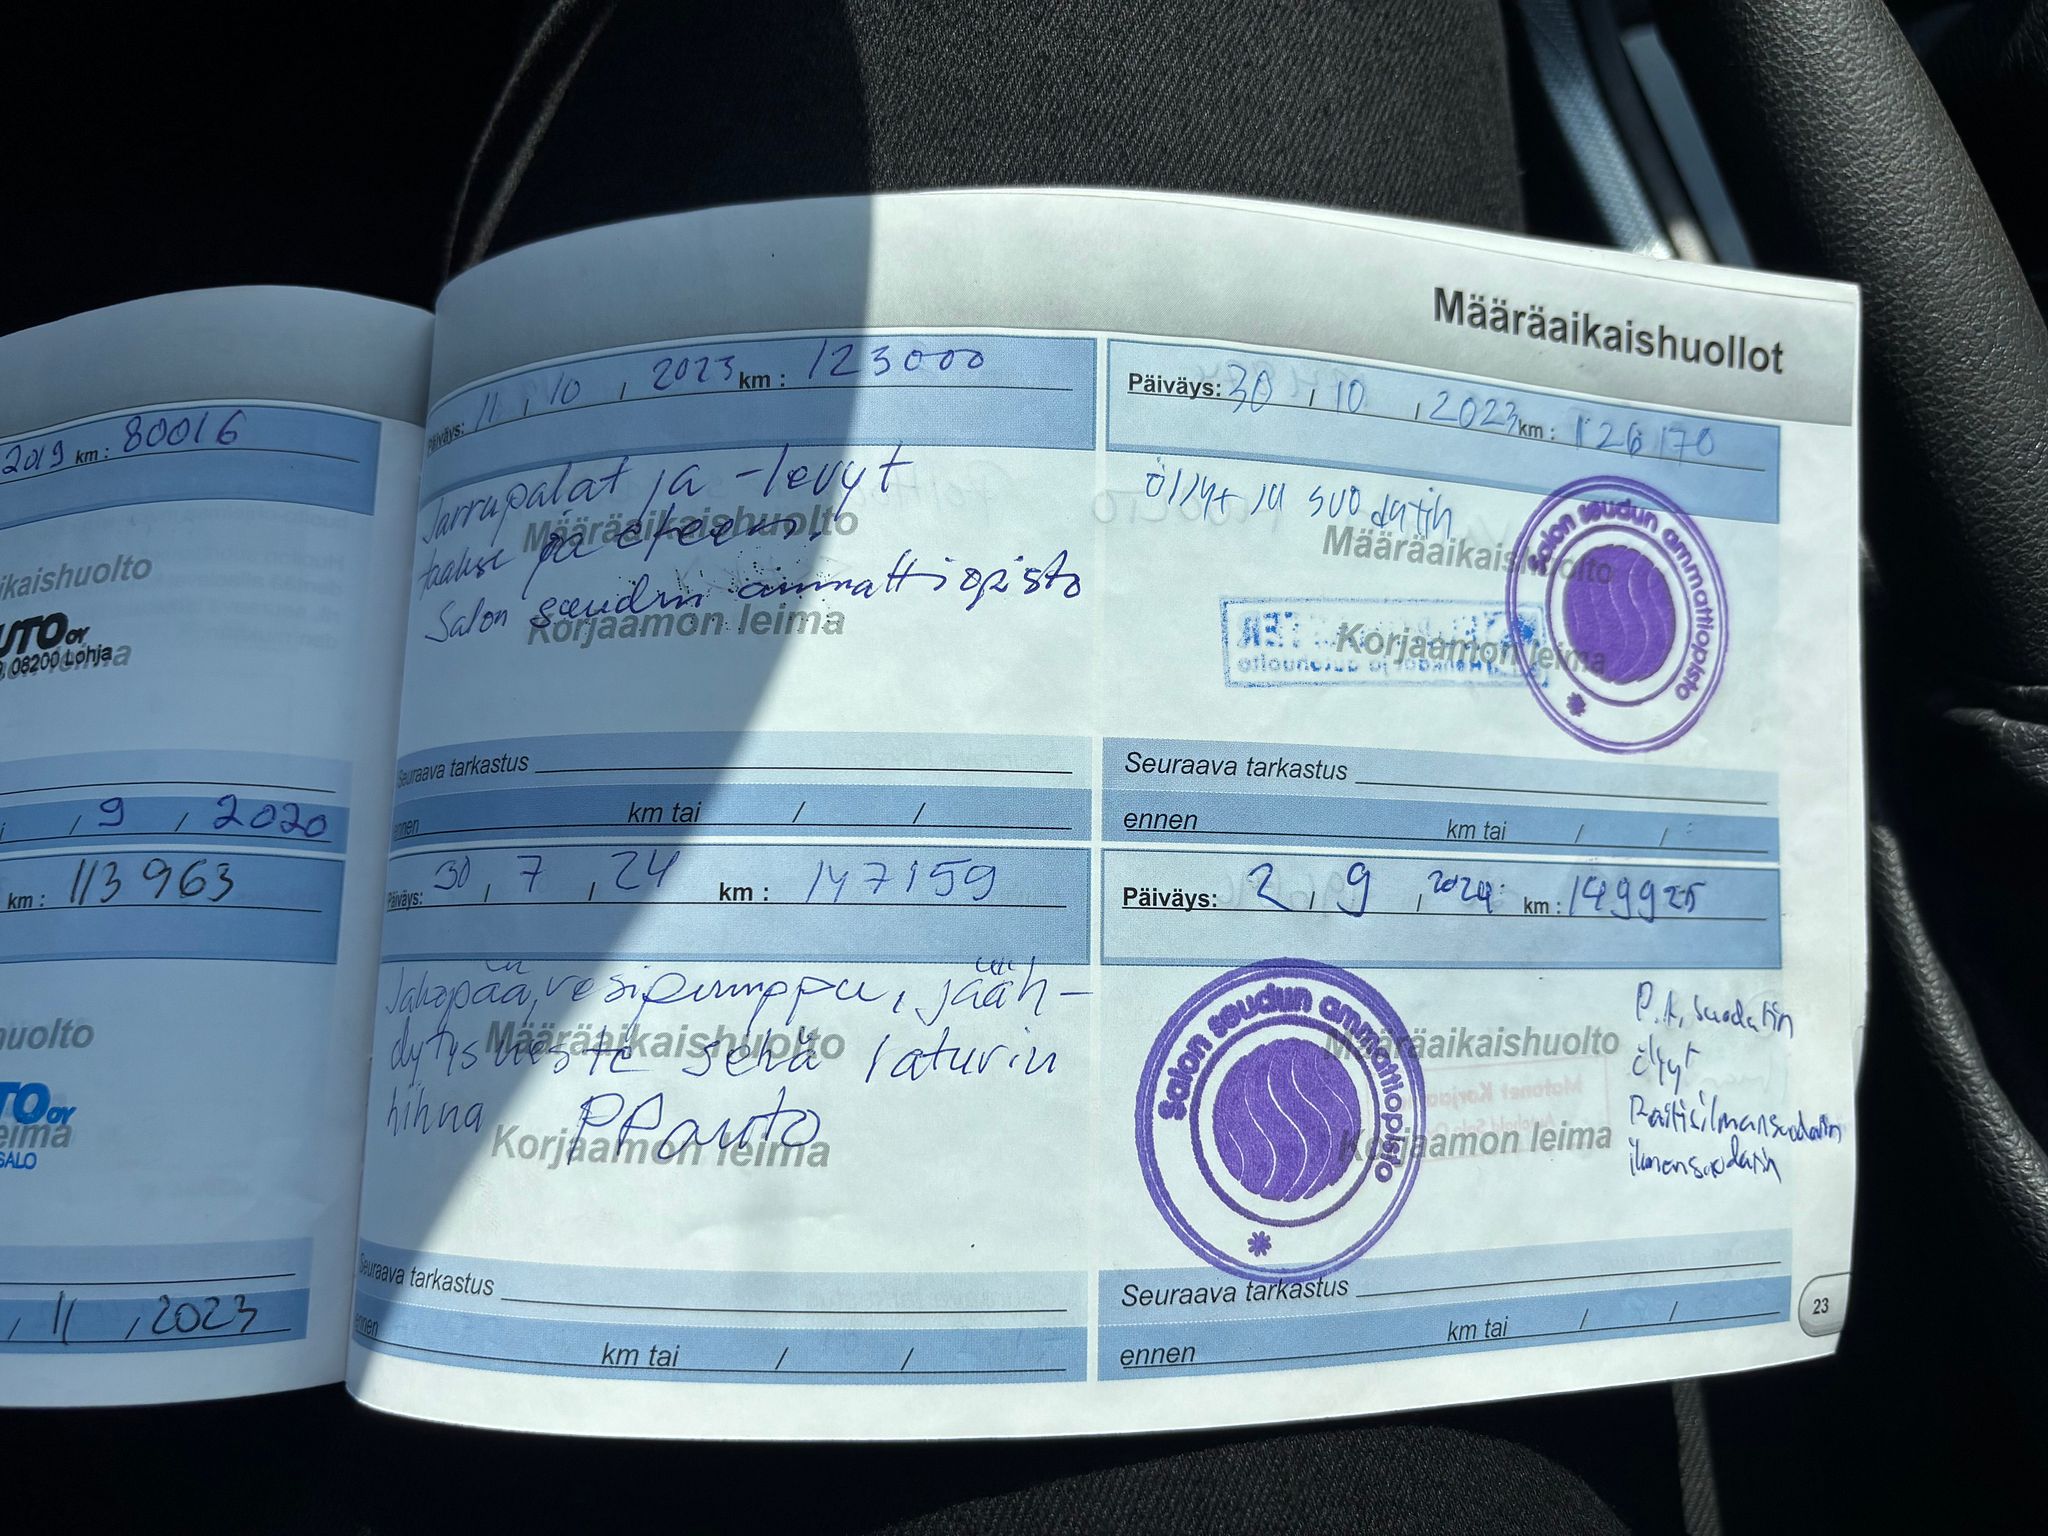 Määräaikaishuollot
2019 km : 80016
ikaishuolto
UTO OY
08200 Lohja
eima
9 / 2020
km : 113963
huolto
TO OY
eima
SALO
11 / 2023
Päiväys: 11 / 10 / 2023 km : 123000
Jarrupalat ja -levyt
taakse ja eteen.
Salon seudun ammattiopisto
Määräaikaishuolto
Korjaamon leima
Seuraava tarkastus
ennen km tai / /
Päiväys: 30 / 10 / 2023 km : 126170
öljyt ja suodatin
Määräaikaishuolto
Korjaamon leima
Salon seudun ammattiopisto
Seuraava tarkastus
ennen km tai / /
Päiväys: 30 / 7 / 24 km : 147159
Jakopää, vesipumppu, jääh-
dytysneste sekä laturin
hihna PP auto
Määräaikaishuolto
Korjaamon leima
Seuraava tarkastus
ennen km tai / /
Päiväys: 2 / 9 / 2024 km : 149925
Salon seudun ammattiopisto
Määräaikaishuolto
Korjaamon leima
P.A. suodatin
öljyt
Raitisilmansuodatin
ilmansuodatin
Seuraava tarkastus
ennen km tai / /
23